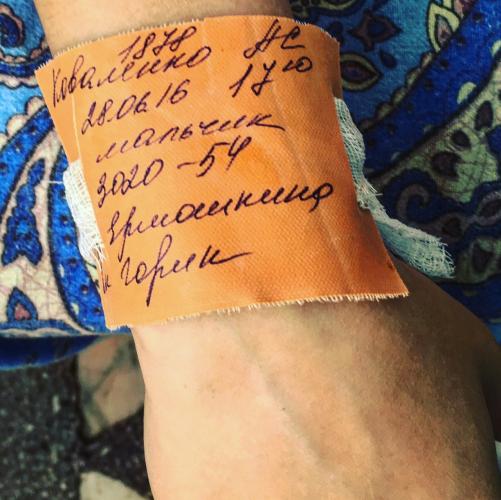 1878
Коваленко АС
28.06.16 17 10
мальчик
3020 - 54
Ермошкина
Горик